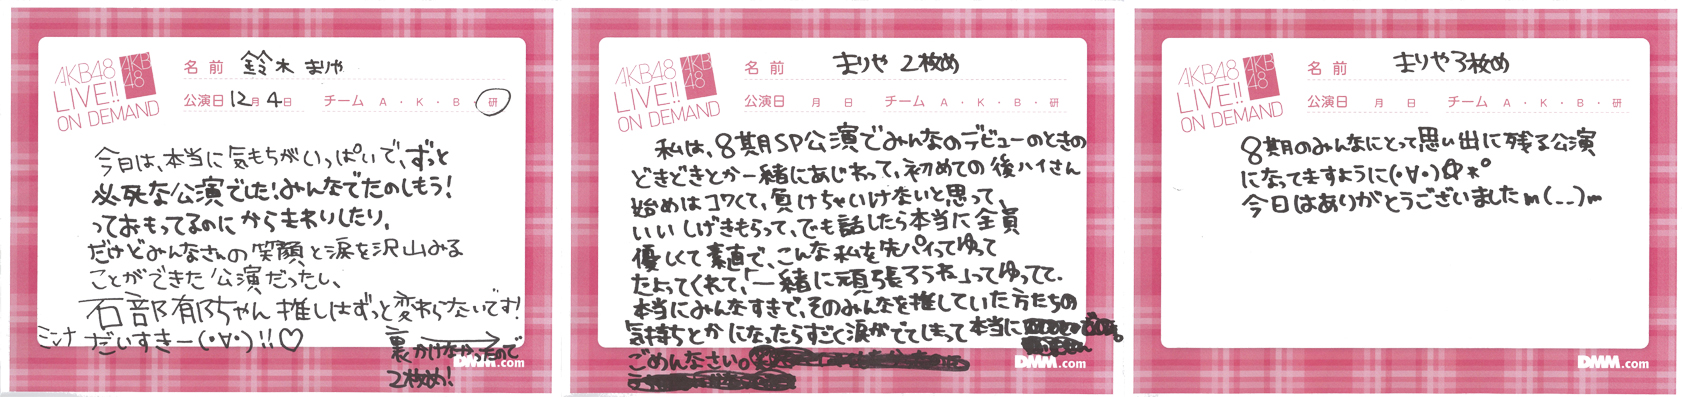 AKB48
LIVE!!
ON DEMAND
AKB
48
名前 鈴木まりや
公演日 12月4日 チーム A・K・B・研
今日は、本当に気もちがいっぱいで、ずっと
必死な公演でした!みんなでたのしもう!
っておもってるのにからまわりしたり。
だけどみんなさんの笑顔と涙を沢山みる
ことができた公演だったし、
石部郁ちゃん推しはずっと変わらないです!
ミンナだいすきー(・∀・)!!♡
裏かけなかったので
2枚め!
DMM.com
AKB48
LIVE!!
ON DEMAND
AKB
48
名前 まりや 2枚め
公演日 月 日 チーム A・K・B・研
私は、8期SP公演でみんなのデビューのときの
どきどきとか一緒にあじわって、初めての後ハイさん
始めはコワくて、負けちゃいけないと思って、
いいしげきもらって、でも話したら本当に全員
優しくて素直で、こんな私を先パイってゆって
たよってくれて、「一緒に頑張ろうね」ってゆってて。
本当にみんなすきで、そのみんなを推していた方たちの
気持ちとかになったらすごく涙がでてしまって本当に
ごめんなさい。
DMM.com
AKB48
LIVE!!
ON DEMAND
AKB
48
名前 まりや3枚め
公演日 月 日 チーム A・K・B・研
8期のみんなにとって思い出に残る公演
になってますように(・∀・)
今日はありがとうございましたm(__)m
DMM.com